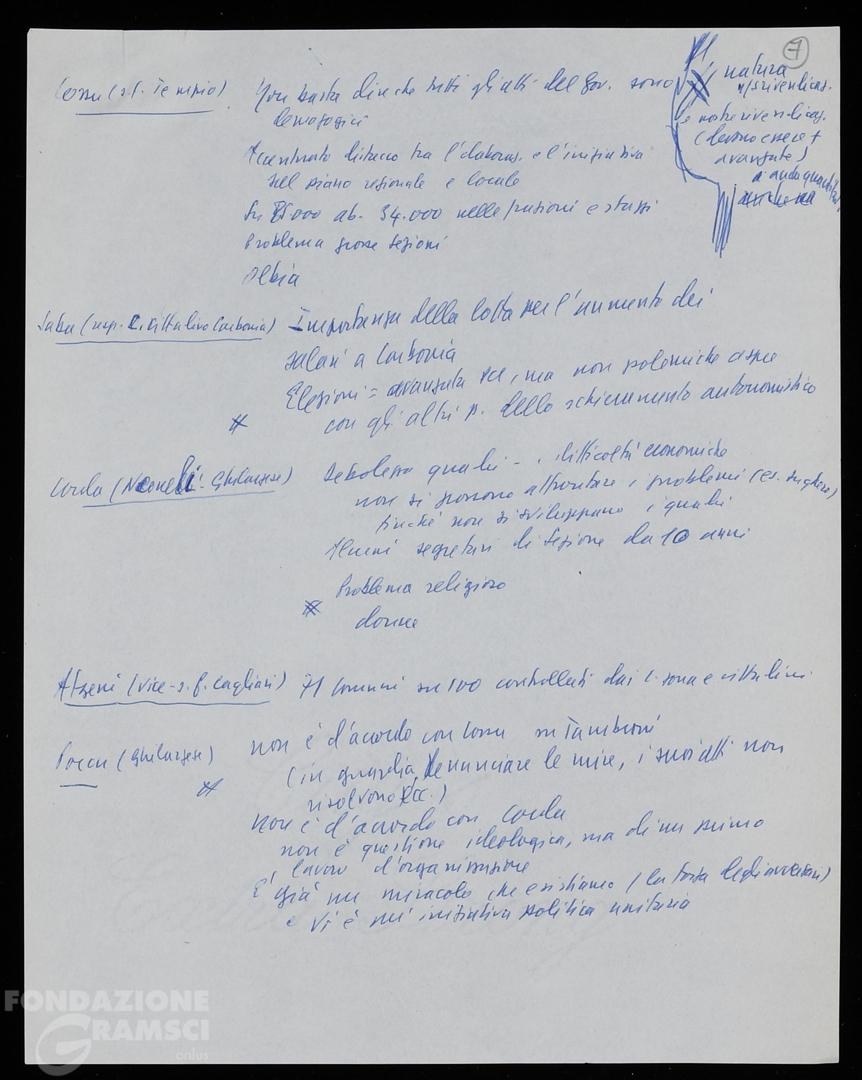 7
Cossu (s.f. Tempio) Non basta dire che tutti gli atti del Gov. sono
demagogici
natura
rivendicaz.
e nostre rivendicaz.
(devono essere +
avanzate)
Accentuato distacco tra l'elaboraz. e l'iniziativa
sul piano regionale e locale
Su 85000 ab. 34.000 nelle frazioni e stazzi
Problema grosse sezioni
Olbia
Saba (resp. C. cittadino Carbonia) Importanza della lotta per l'aumento dei
salari a Carbonia
Elezioni = avanzata PCI, ma non polemiche aspre
con gli altri p. dello schieramento autonomistico
Corda (Nonelli - Ghilarzese) Debolezza quadri - difficoltà economiche
non si possono affrontare i problemi (es. sughero)
finché non si sviluppano i quadri
Alcuni segretari di sezione da 10 anni
Problema religioso
donne
Atzeni (vice-s.f. Cagliari) 71 Comuni su 100 controllati dai C. zona e cittadini
Porcu (Ghilarzese) non è d'accordo con Cossu su Tambroni
(in guardia, denunciare le mire, i suoi atti non
risolvono ecc.)
non è d'accordo con Corda
non è questione ideologica, ma di un primo
lavoro d'organizzazione
È già un miracolo che esistiamo (la forza degli avversari)
e vi è un'iniziativa politica unitaria
FONDAZIONE
GRAMSCI
onlus